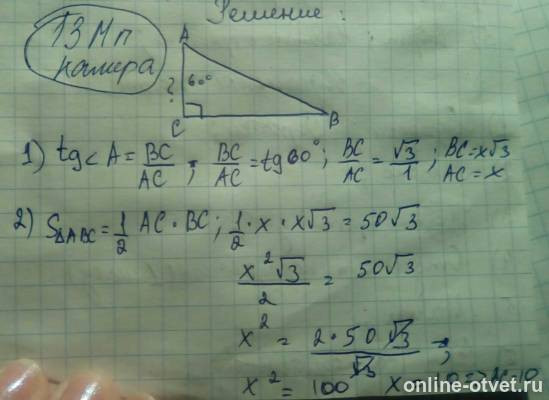 Решение:
13 Мп
камера
A
60°
?
C
B
1) tg<A = BC/AC; BC/AC = tg60°; BC/AC = √3/1; BC=x√3
AC=x
2) S△ABC = 1/2 AC·BC; 1/2·x·x√3 = 50√3
x²√3/2 = 50√3
x² = 2·50√3/√3;
x² = 100 x
online-otvet.ru